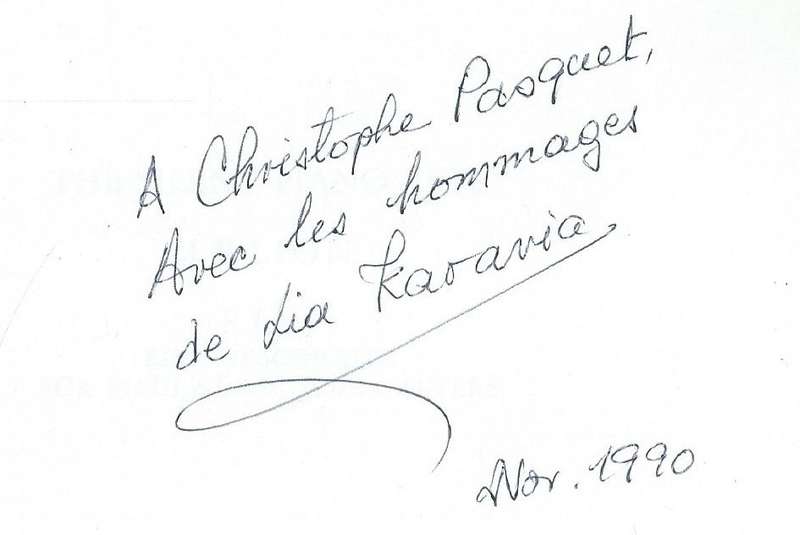 A Christophe Pasquet,
Avec les hommages
de Lia Karavia
Nov. 1990